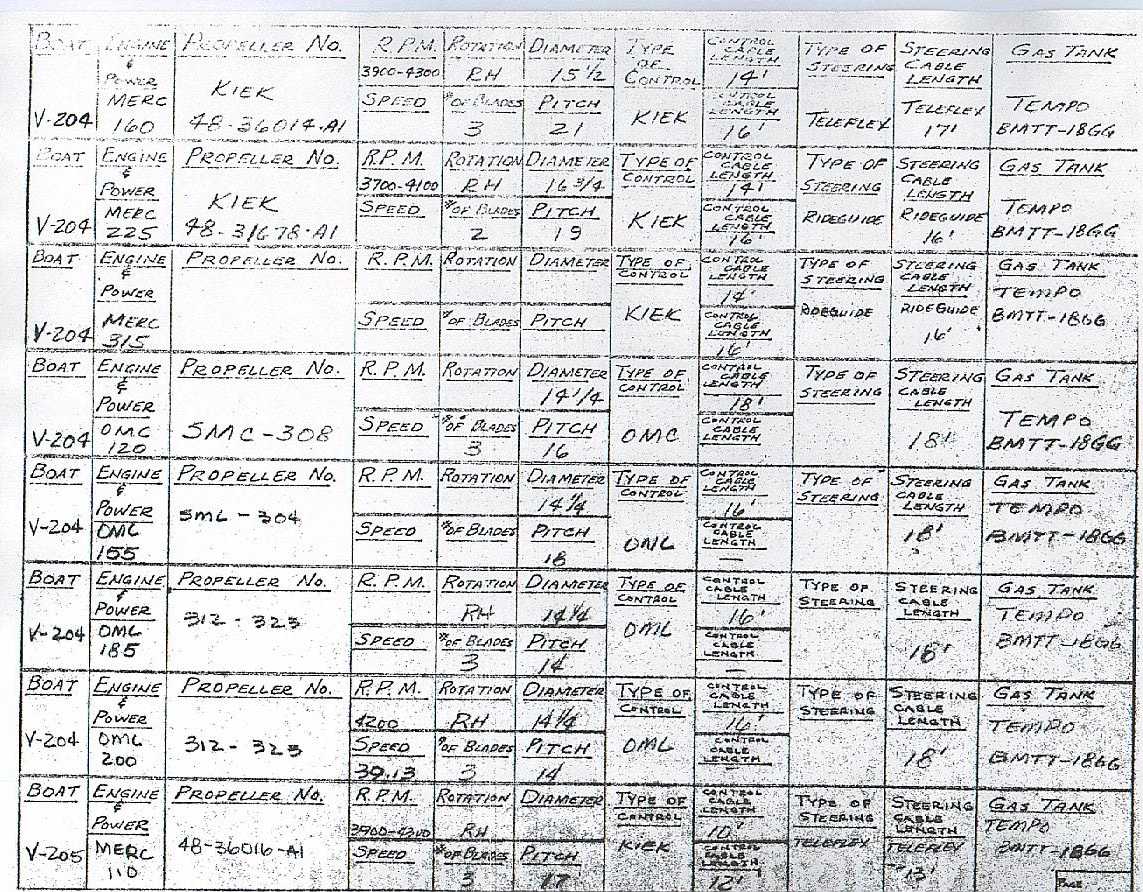 BOAT ENGINE & POWER PROPELLER NO. R.P.M. ROTATION DIAMETER TYPE OF CONTROL CONTROL CABLE LENGTH TYPE OF STEERING STEERING CABLE LENGTH GAS TANK
3900-4300 RH 15 1/2 14'
MERC KIEK SPEED # OF BLADES PITCH CONTROL CABLE LENGTH TELEFLEX TEMPO
V-204 160 48-36014-A1 3 21 KIEK 16' TELEFLEX 17' BMTT-18GG
BOAT ENGINE & POWER PROPELLER NO. R.P.M. ROTATION DIAMETER TYPE OF CONTROL CONTROL CABLE LENGTH TYPE OF STEERING STEERING CABLE LENGTH GAS TANK
3700-4100 RH 16 3/4 14'
MERC KIEK SPEED # OF BLADES PITCH CONTROL CABLE LENGTH RIDEGUIDE RIDEGUIDE TEMPO
V-204 225 48-31678-A1 2 19 KIEK 16' 16' BMTT-18GG
BOAT ENGINE & POWER PROPELLER NO. R.P.M. ROTATION DIAMETER TYPE OF CONTROL CONTROL CABLE LENGTH TYPE OF STEERING STEERING CABLE LENGTH GAS TANK
14' TEMPO
MERC SPEED # OF BLADES PITCH KIEK CONTROL CABLE LENGTH RIDEGUIDE RIDEGUIDE BMTT-18GG
V-204 315 16' 16'
BOAT ENGINE & POWER PROPELLER NO. R.P.M. ROTATION DIAMETER TYPE OF CONTROL CONTROL CABLE LENGTH TYPE OF STEERING STEERING CABLE LENGTH GAS TANK
14 1/4 18'
OMC SMC-308 SPEED # OF BLADES PITCH OMC CONTROL CABLE LENGTH 18' TEMPO
V-204 120 3 16 BMTT-18GG
BOAT ENGINE & POWER PROPELLER NO. R.P.M. ROTATION DIAMETER TYPE OF CONTROL CONTROL CABLE LENGTH TYPE OF STEERING STEERING CABLE LENGTH GAS TANK
SML-304 14 1/4 16' TEMPO
V-204 OML SPEED # OF BLADES PITCH OML CONTROL CABLE LENGTH 18' BMTT-18GG
155 18 —
BOAT ENGINE & POWER PROPELLER NO. R.P.M. ROTATION DIAMETER TYPE OF CONTROL CONTROL CABLE LENGTH TYPE OF STEERING STEERING CABLE LENGTH GAS TANK
312-323 RH 14 1/4 16' TEMPO
V-204 OML SPEED # OF BLADES PITCH OML CONTROL CABLE LENGTH 18' BMTT-18GG
185 3 14 —
BOAT ENGINE & POWER PROPELLER NO. R.P.M. ROTATION DIAMETER TYPE OF CONTROL CONTROL CABLE LENGTH TYPE OF STEERING STEERING CABLE LENGTH GAS TANK
4200 RH 14 1/4 16' TEMPO
V-204 OML 312-323 SPEED # OF BLADES PITCH OML CONTROL CABLE LENGTH 18' BMTT-18GG
200 39.13 3 14 —
BOAT ENGINE & POWER PROPELLER NO. R.P.M. ROTATION DIAMETER TYPE OF CONTROL CONTROL CABLE LENGTH TYPE OF STEERING STEERING CABLE LENGTH GAS TANK
3900-4300 RH 10' TEMPO
V-205 MERC 48-36016-A1 SPEED # OF BLADES PITCH KIEK CONTROL CABLE LENGTH TELEFLEX TELEFLEX BMTT-18GG
110 3 17 12' 13'